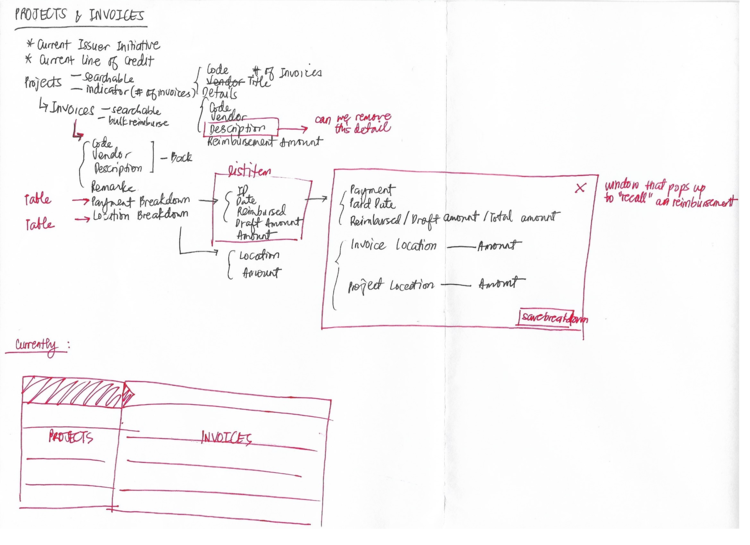 PROJECTS & INVOICES
* Current Issuer Initiative
* Current Line of Credit
Projects - searchable
- indicator (# of invoices)
Code # of Invoices
Vendor Title
Details
↳ Invoices - searchable
- bulk reimburse
Code
Vendor
Description → can we remove this detail
Reimbursement Amount
Code
Vendor
Description
- Back
Remarks
Table → Payment Breakdown →
Table → Location Breakdown
List item
ID
Date
Reimbursed
Draft Amount
Amount
Location
Amount
X
Payment
Paid Date
Reimbursed / Draft amount / Total amount
Invoice Location — Amount
Project Location — Amount
save breakdown
window that pops up
to "recall" an reimbursement
Currently :
PROJECTS INVOICES